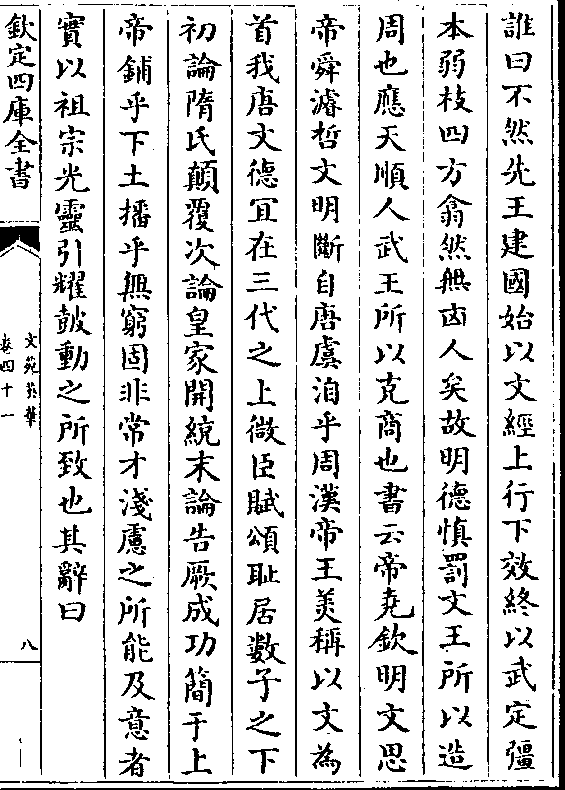 誰曰不然先王建國始以文經上行下效終以武定彊
本弱枝四方翕然無凶人矣故明德慎罰文王所以造
周也應天順人武王所以克商也書云帝堯欽明文思
帝舜濬哲文明斷自唐虞洎乎周漢帝王美稱以文為
首我唐文德宜在三代之上微臣賦頌恥居數子之下
初論隋氏顛覆次論皇家開統末論告厥成功簡于上
帝鋪乎下土播乎無窮固非常才淺慮之所能及意者
實以祖宗光靈引耀鼓動之所致也其辭曰
欽定四庫全書
文苑英華
卷四十一
八